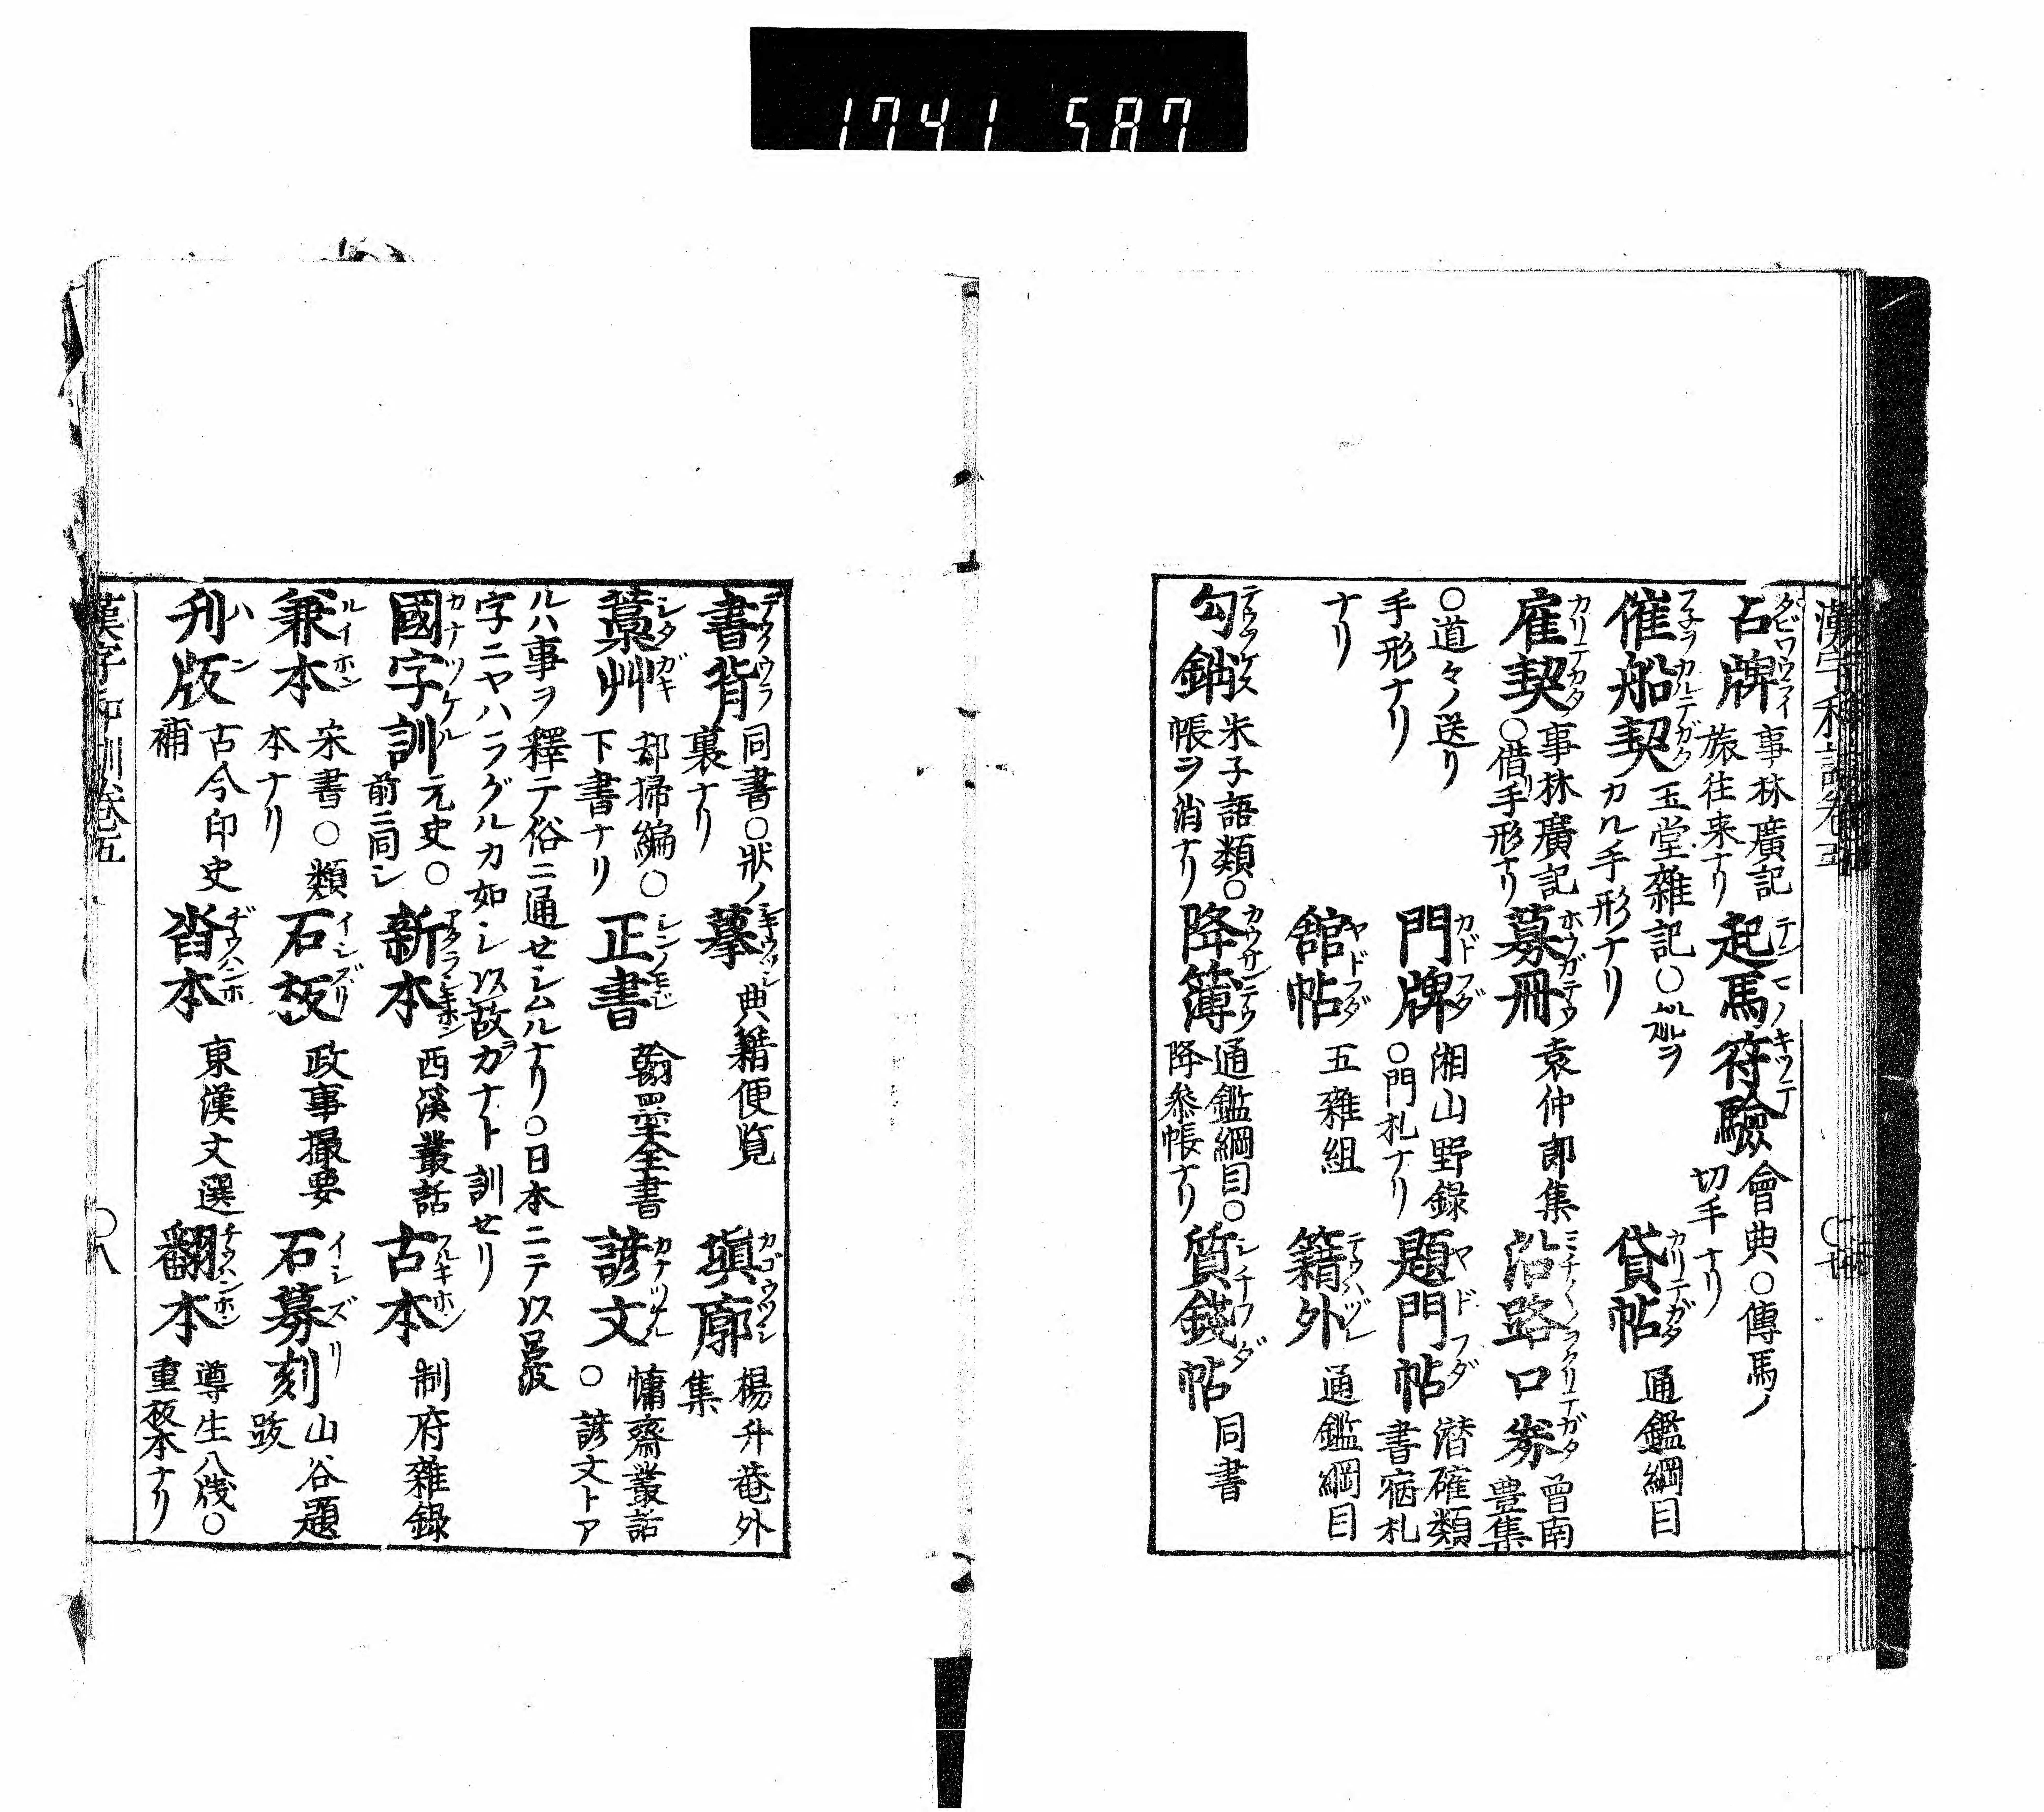 1741 587
漢字和訓卷五
占牌 事林廣記
旅往来ナリ
起馬符驗 會典〇傳馬ノ
切手ナリ
催船契 玉堂雑記〇舩ヲ
カル手形ナリ
貸帖 通鑑綱目
雇契 事林廣記
〇借手形ナリ
募冊 袁仲郎集
沿路口券 曽南
豊集
〇道々ノ送リ
手形ナリ
門牌 湘山野録
〇門札ナリ
題門帖 潜確類
書宿札
ナリ
舘帖 五雜組
籍外 通鑑綱目
勾銷 朱子語類〇
帳ヲ消ナリ
降簿 通鑑綱目〇
降参帳ナリ
質錢帖 同書
書背 同書〇狀ノ
裏ナリ
摹 典籍便覧
塡廓 楊升菴外
集
藁艸 却掃編〇
下書ナリ
正書 翰墨全書
諺文 慵齋叢話
〇諺文トア
ルハ事ヲ釋テ俗ニ通セシムルナリ〇日本ニテ以呂波
字ニヤハラグルカ如シ以故ヲカナト訓セリ
國字訓 元史〇
前ニ同シ
新本 西溪叢話
古本 制府雜錄
兼本 宋書〇類
本ナリ
石板 政事撮要
石摹刻 山谷題
跋
刋版 古今印史
補
沓本 東漢文選
翻本 尊生八牋〇
重板本ナリ
漢字和訓卷五
〇八